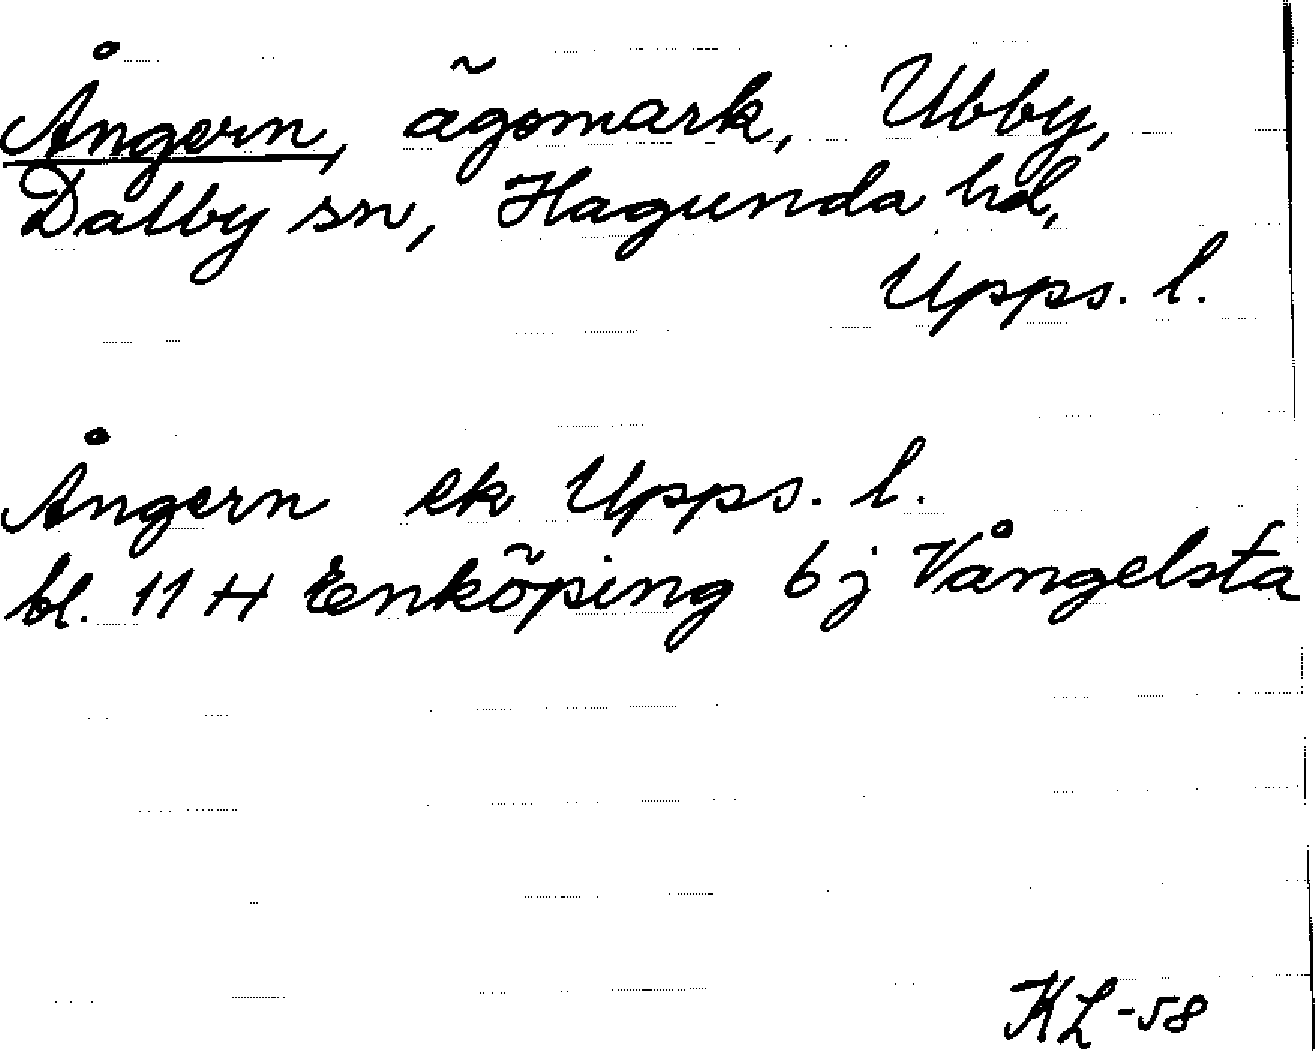 Ångern, ägomark, Ubby,
Dalby sn, Hagunda hd,
Upps. l.
Ångern ek Upps. l.
bl. 11 H Enköping 6 j Vångelsta
KL-58